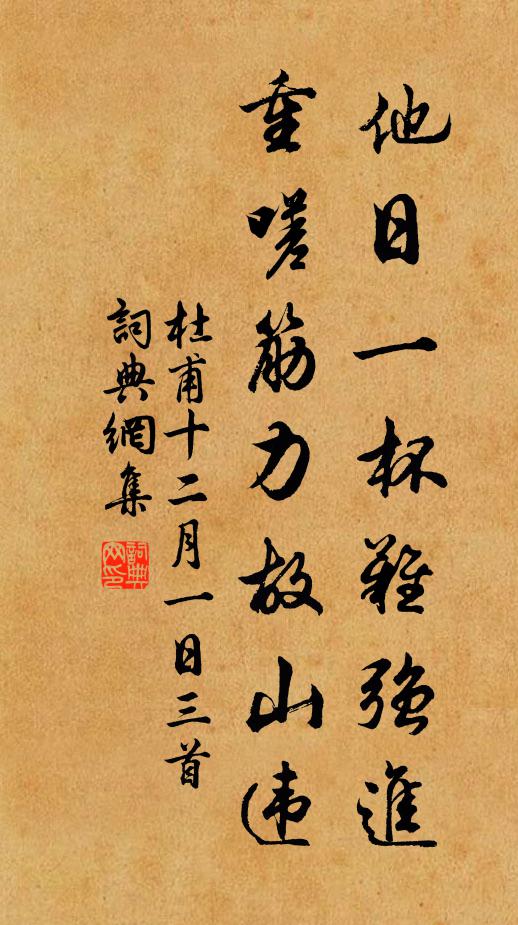 他日一杯難強進
重嗟筋力故山違
杜甫十二月一日三首
詞典網集
詞典网印